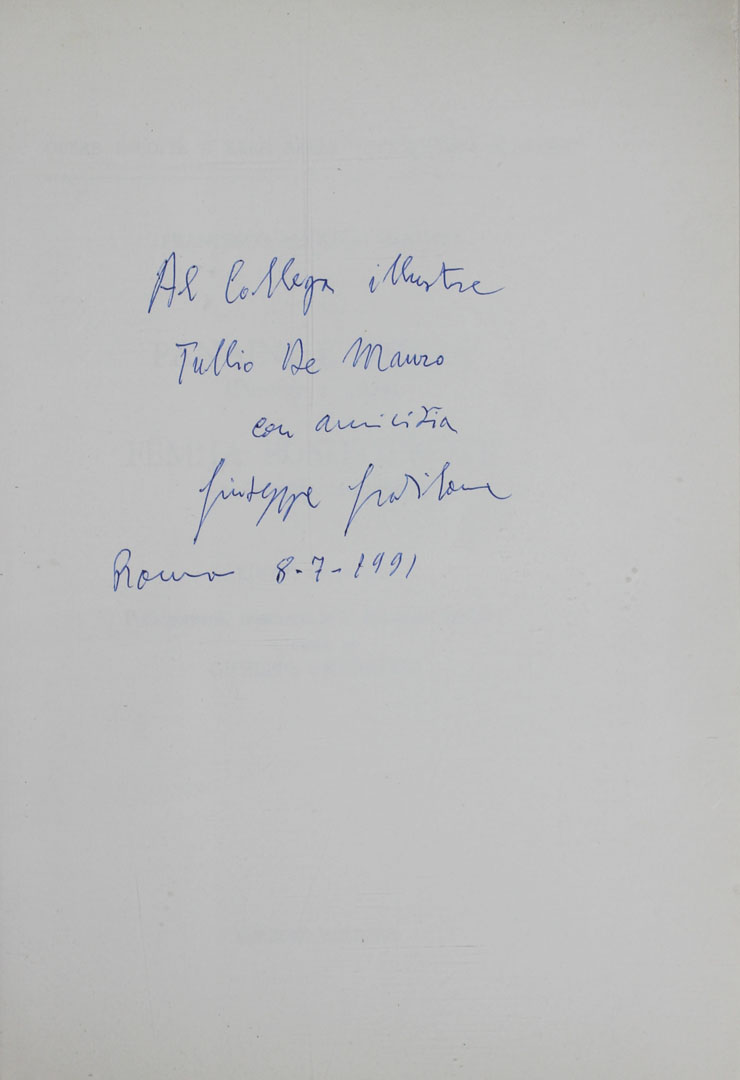 Al Collega illustre
Tullio De Mauro
con amicizia
Giuseppe Gradilone
Roma 8-7-1991